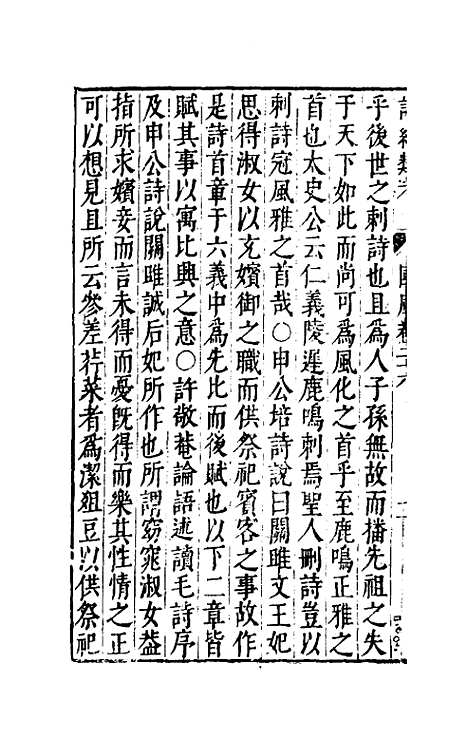 乎後世之刺詩也且為人子孫無故而播先祖之失
于天下如此而尚可為風化之首乎至鹿鳴正雅之
首也太史公云仁義陵遲鹿鳴刺焉聖人刪詩豈以
刺詩冠風雅之首哉○申公培詩說曰關雎文王妃
思得淑女以充嬪御之職而供祭祀賓客之事故作
是詩首章于六義中為先比而後賦也以下二章皆
賦其事以寓比興之意○許敬菴論語述讀毛詩序
及申公詩說關雎誠后妃所作也所謂窈窕淑女葢
指所求嬪妾而言未得而憂旣得而樂其性情之正
可以想見且所云參差荇菜者為潔俎豆以供祭祀